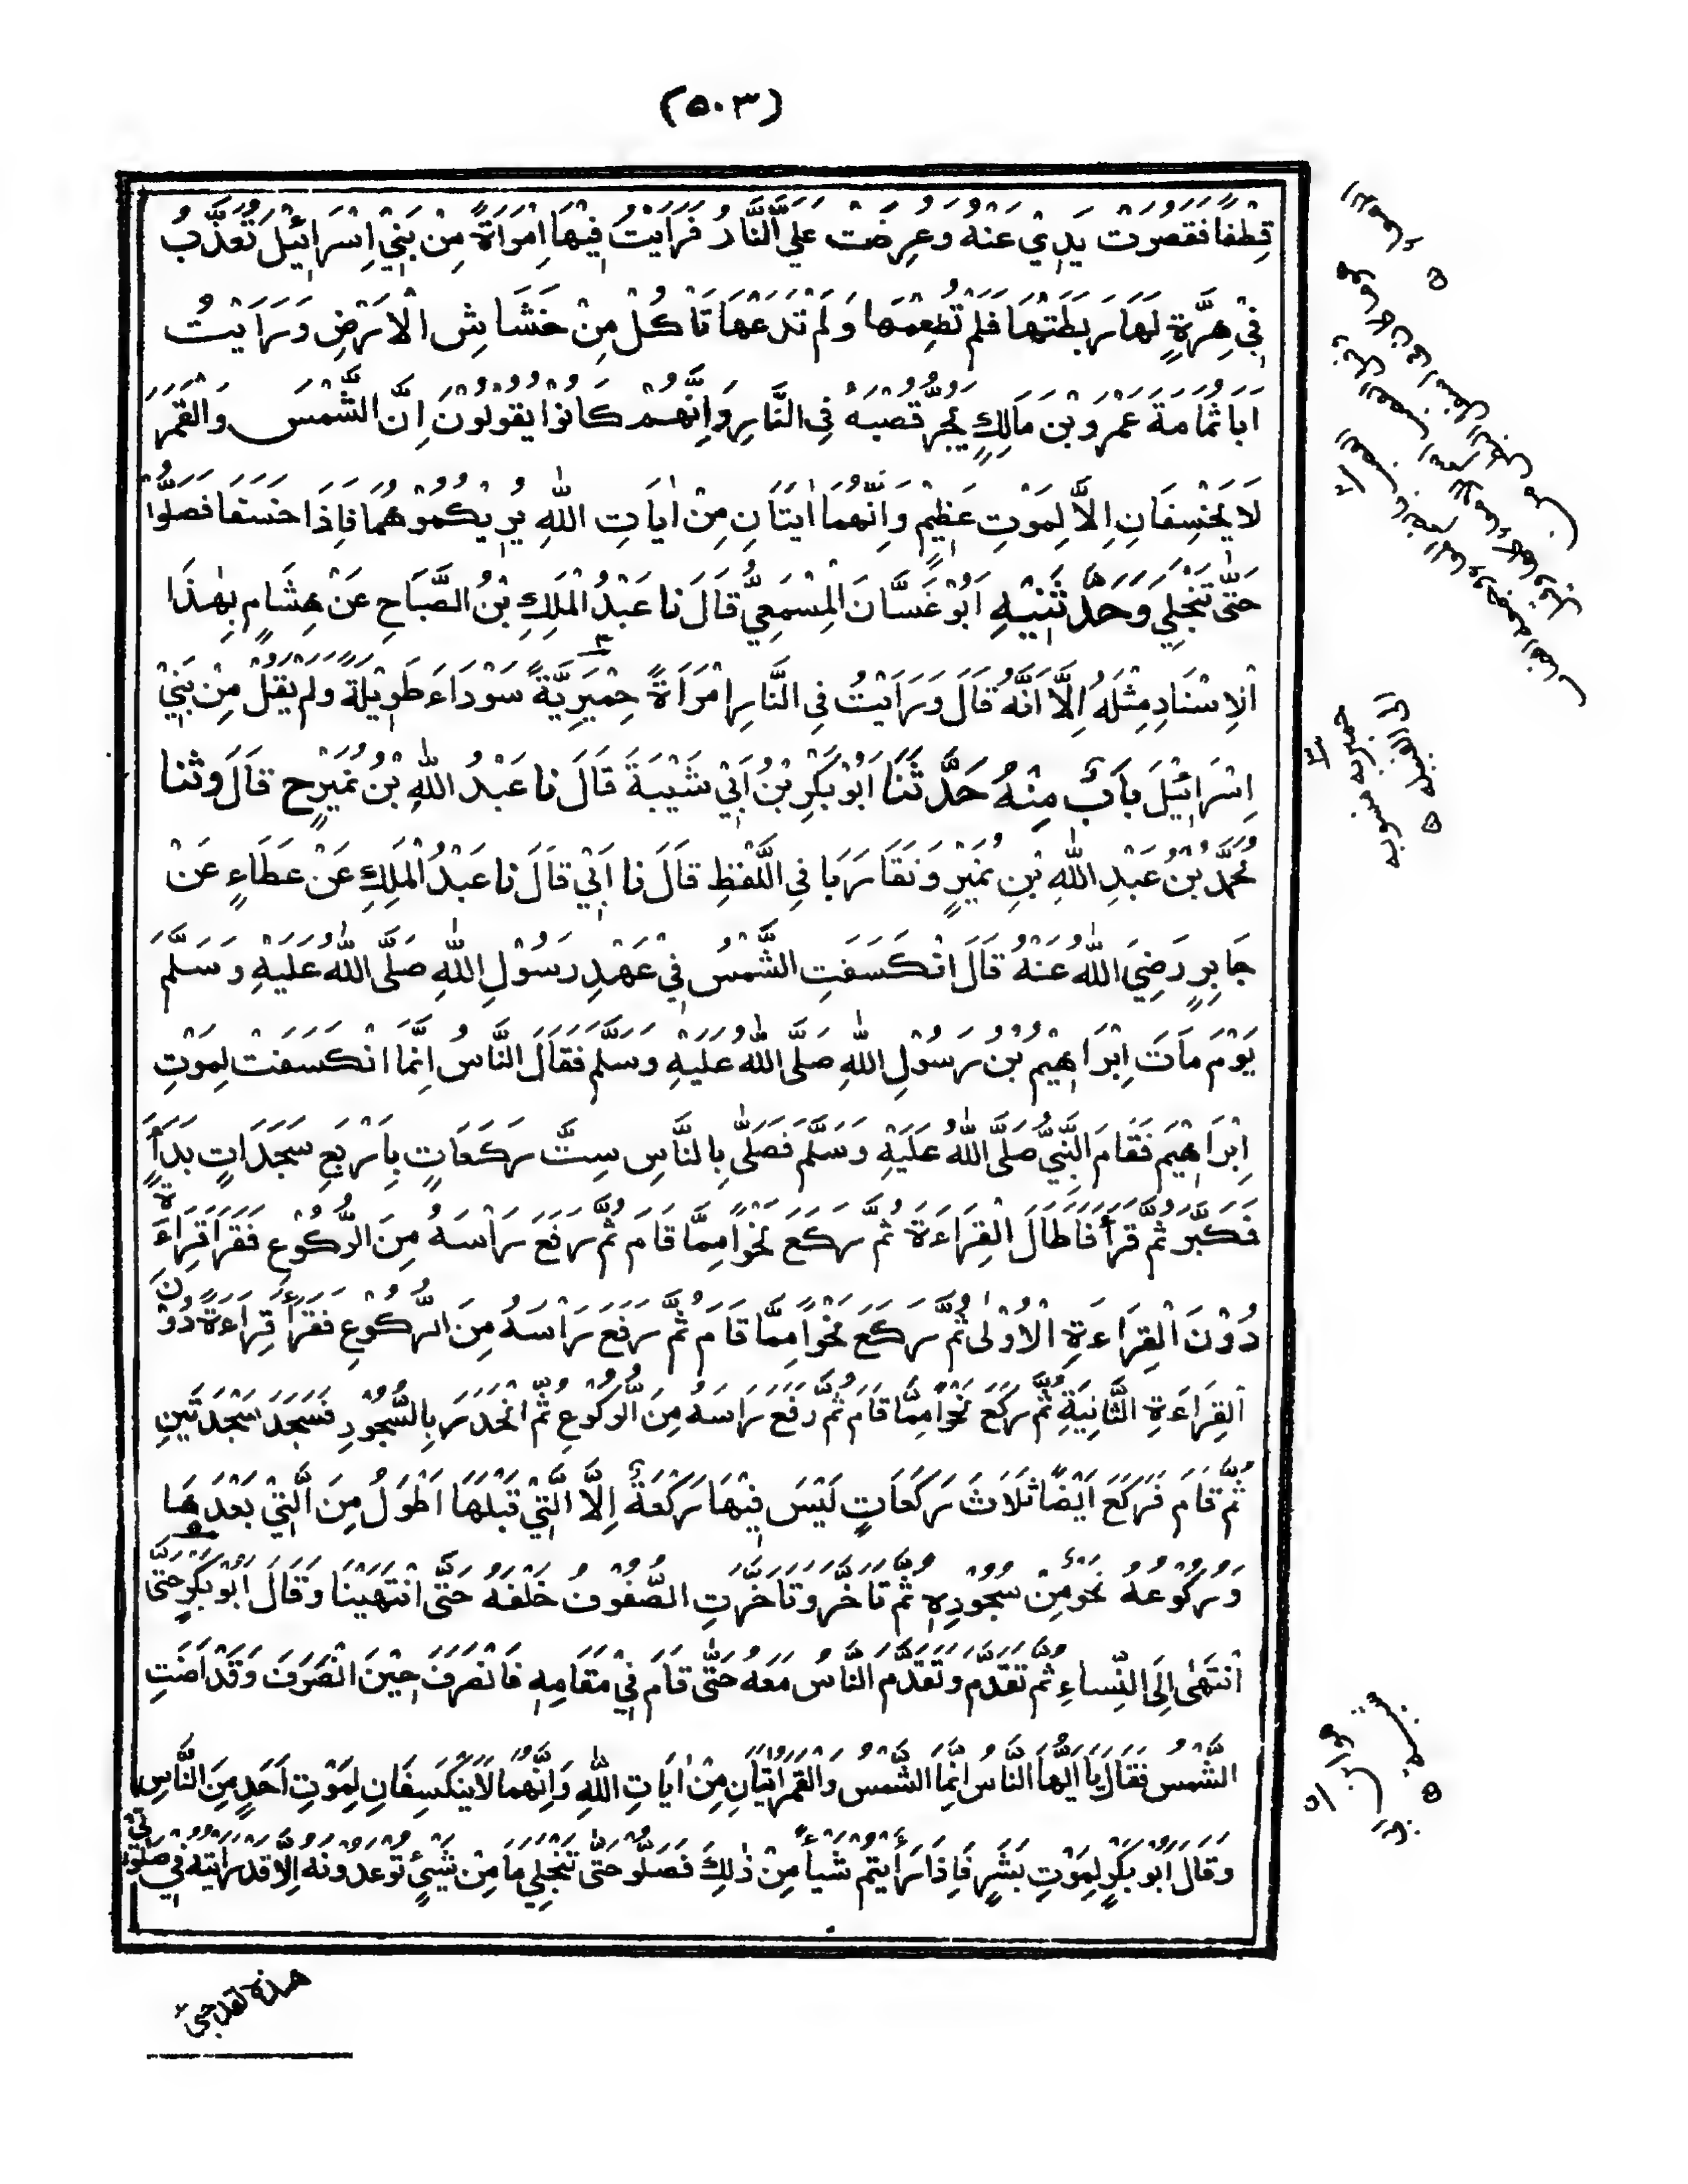 (٥٠٣)
قِطْفًا فَقَصُرَتْ يَدِيْ عَنْهُ وَعُرِضَتْ عَلَيَّ النَّارُ فَرَاَيْتُ فِيْهَا اِمْرَاَةً مِنْ بَنِيْ اِسْرَائِيْلَ تُعَذَّبُ
فِيْ هِرَّةٍ لَهَا رَبَطَتْهَا فَلَمْ تُطْعِمْهَا وَلَمْ تَدَعْهَا تَاْكُلْ مِنْ خَشَاشِ الْاَرْضِ وَرَاَيْتُ
اَبَا ثُمَامَةَ عَمْرَو بْنَ مَالِكٍ يَجُرُّ قُصْبَهُ فِي النَّارِ وَاِنَّهُمْ كَانُوْا يَقُوْلُوْنَ اِنَّ الشَّمْسَ وَالْقَمَرَ
لَا يَخْسِفَانِ اِلَّا لِمَوْتِ عَظِيْمٍ وَاِنَّهُمَا اٰيَتَانِ مِنْ اٰيَاتِ اللّٰهِ يُرِيْكُمُوْهُمَا فَاِذَا خَسَفَا فَصَلُّوْا
حَتّٰى تَنْجَلِيَ وَحَدَّثَنِيْهِ اَبُوْ غَسَّانَ الْمِسْمَعِيُّ قَالَ نَا عَبْدُ الْمَلِكِ بْنُ الصَّبَّاحِ عَنْ هِشَامٍ بِهٰذَا
الْاِسْنَادِ مِثْلَهُ اِلَّا اَنَّهُ قَالَ وَرَاَيْتُ فِي النَّارِ امْرَاَةً حِمْيَرِيَّةً سَوْدَاءَ طَوِيْلَةً وَلَمْ يَقُلْ مِنْ بَنِيْ
اِسْرَائِيْلَ بَابٌ مِنْهُ حَدَّثَنَا اَبُوْ بَكْرِ بْنُ اَبِيْ شَيْبَةَ قَالَ نَا عَبْدُ اللّٰهِ بْنُ نُمَيْرٍ ح قَالَ وَثَنَا
مُحَمَّدُ بْنُ عَبْدِ اللّٰهِ بْنِ نُمَيْرٍ وَتَقَارَبَا فِي اللَّفْظِ قَالَ نَا اَبِيْ قَالَ نَا عَبْدُ الْمَلِكِ عَنْ عَطَاءٍ عَنْ
جَابِرٍ رَضِيَ اللّٰهُ عَنْهُ قَالَ انْكَسَفَتِ الشَّمْسُ فِيْ عَهْدِ رَسُوْلِ اللّٰهِ صَلَّى اللّٰهُ عَلَيْهِ وَسَلَّمَ
يَوْمَ مَاتَ اِبْرَاهِيْمُ بْنُ رَسُوْلِ اللّٰهِ صَلَّى اللّٰهُ عَلَيْهِ وَسَلَّمَ فَقَالَ النَّاسُ اِنَّمَا انْكَسَفَتْ لِمَوْتِ
اِبْرَاهِيْمَ فَقَامَ النَّبِيُّ صَلَّى اللّٰهُ عَلَيْهِ وَسَلَّمَ فَصَلّٰى بِالنَّاسِ سِتَّ رَكَعَاتٍ بِاَرْبَعِ سَجَدَاتٍ بَدَأَ
فَكَبَّرَ ثُمَّ قَرَأَ فَاَطَالَ الْقِرَاءَةَ ثُمَّ رَكَعَ نَحْوًا مِمَّا قَامَ ثُمَّ رَفَعَ رَاْسَهُ مِنَ الرُّكُوْعِ فَقَرَاَ قِرَاءَةً
دُوْنَ الْقِرَاءَةِ الْاُوْلٰى ثُمَّ رَكَعَ نَحْوًا مِمَّا قَامَ ثُمَّ رَفَعَ رَاْسَهُ مِنَ الرُّكُوْعِ فَقَرَأَ قِرَاءَةً دُوْنَ
الْقِرَاءَةِ الثَّانِيَةِ ثُمَّ رَكَعَ نَحْوًا مِمَّا قَامَ ثُمَّ رَفَعَ رَاْسَهُ مِنَ الرُّكُوْعِ ثُمَّ انْحَدَرَ بِالسُّجُوْدِ فَسَجَدَ سَجْدَتَيْنِ
ثُمَّ قَامَ فَرَكَعَ اَيْضًا ثَلَاثَ رَكَعَاتٍ لَيْسَ فِيْهَا رَكْعَةٌ اِلَّا الَّتِيْ قَبْلَهَا اَطْوَلُ مِنَ الَّتِيْ بَعْدَهَا
وَرُكُوْعُهُ نَحْوٌ مِنْ سُجُوْدِهٖ ثُمَّ تَاَخَّرَ وَتَاَخَّرَتِ الصُّفُوْفُ خَلْفَهُ حَتَّى انْتَهَيْنَا وَقَالَ اَبُوْ بَكْرٍ حَتَّى
انْتَهٰى اِلَى النِّسَاءِ ثُمَّ تَقَدَّمَ وَتَقَدَّمَ النَّاسُ مَعَهُ حَتّٰى قَامَ فِيْ مَقَامِهٖ فَانْصَرَفَ حِيْنَ انْصَرَفَ وَقَدْ اٰضَتِ
الشَّمْسُ فَقَالَ يَا اَيُّهَا النَّاسُ اِنَّمَا الشَّمْسُ وَالْقَمَرُ اٰيَتَانِ مِنْ اٰيَاتِ اللّٰهِ وَاِنَّهُمَا لَا يَنْكَسِفَانِ لِمَوْتِ اَحَدٍ مِنَ النَّاسِ
وَقَالَ اَبُوْ بَكْرٍ لِمَوْتِ بَشَرٍ فَاِذَا رَأَيْتُمْ شَيْأً مِنْ ذٰلِكَ فَصَلُّوْا حَتّٰى تَنْجَلِيَ مَا مِنْ شَيْئٍ تُوْعَدُوْنَهُ اِلَّا قَدْ رَاَيْتُهُ فِيْ صَلٰوتِيْ
حميرية منسوبة
الى القبيلة
هذه لقد جئ